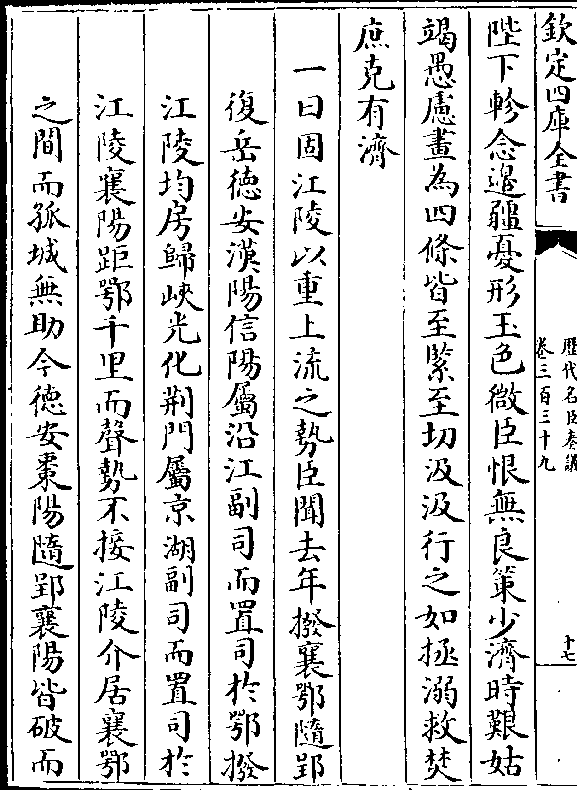 欽定四庫全書
歴代名臣奏議
卷三百三十九
十七
陛下軫念邉疆憂形玉色微臣恨無良策少濟時艱姑
竭愚慮畫為四條皆至緊至切汲汲行之如拯溺救焚
庶克有濟
一曰固江陵以重上流之勢臣聞去年撥襄鄂隨郢
復岳徳安漢陽信陽屬沿江副司而置司於鄂撥
江陵均房歸峽光化荆門屬京湖副司而置司於
江陵襄陽距鄂千里而聲勢不接江陵介居襄鄂
之間而孤城無助今徳安棗陽隨郢襄陽皆破而